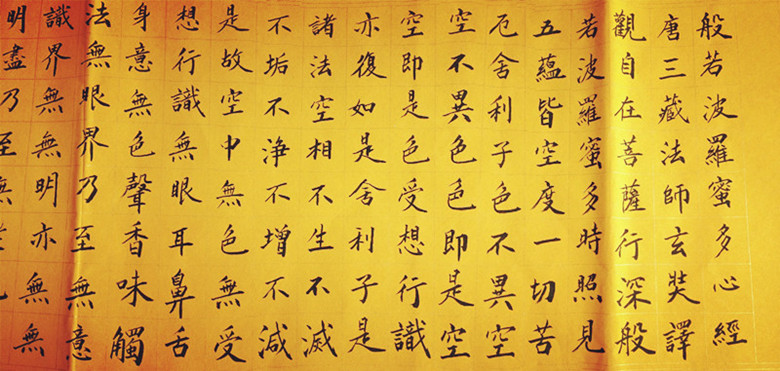 般若波羅蜜多心經
唐三藏法師玄奘譯
觀自在菩薩行深般
若波羅蜜多時照見
五蘊皆空度一切苦
厄舍利子色不異空
空不異色色即是空
空即是色受想行識
亦復如是舍利子是
諸法空相不生不滅
不垢不淨不增不減
是故空中無色無受
想行識無眼耳鼻舌
身意無色聲香味觸
法無眼界乃至無意
識界無無明亦無無
明盡乃至